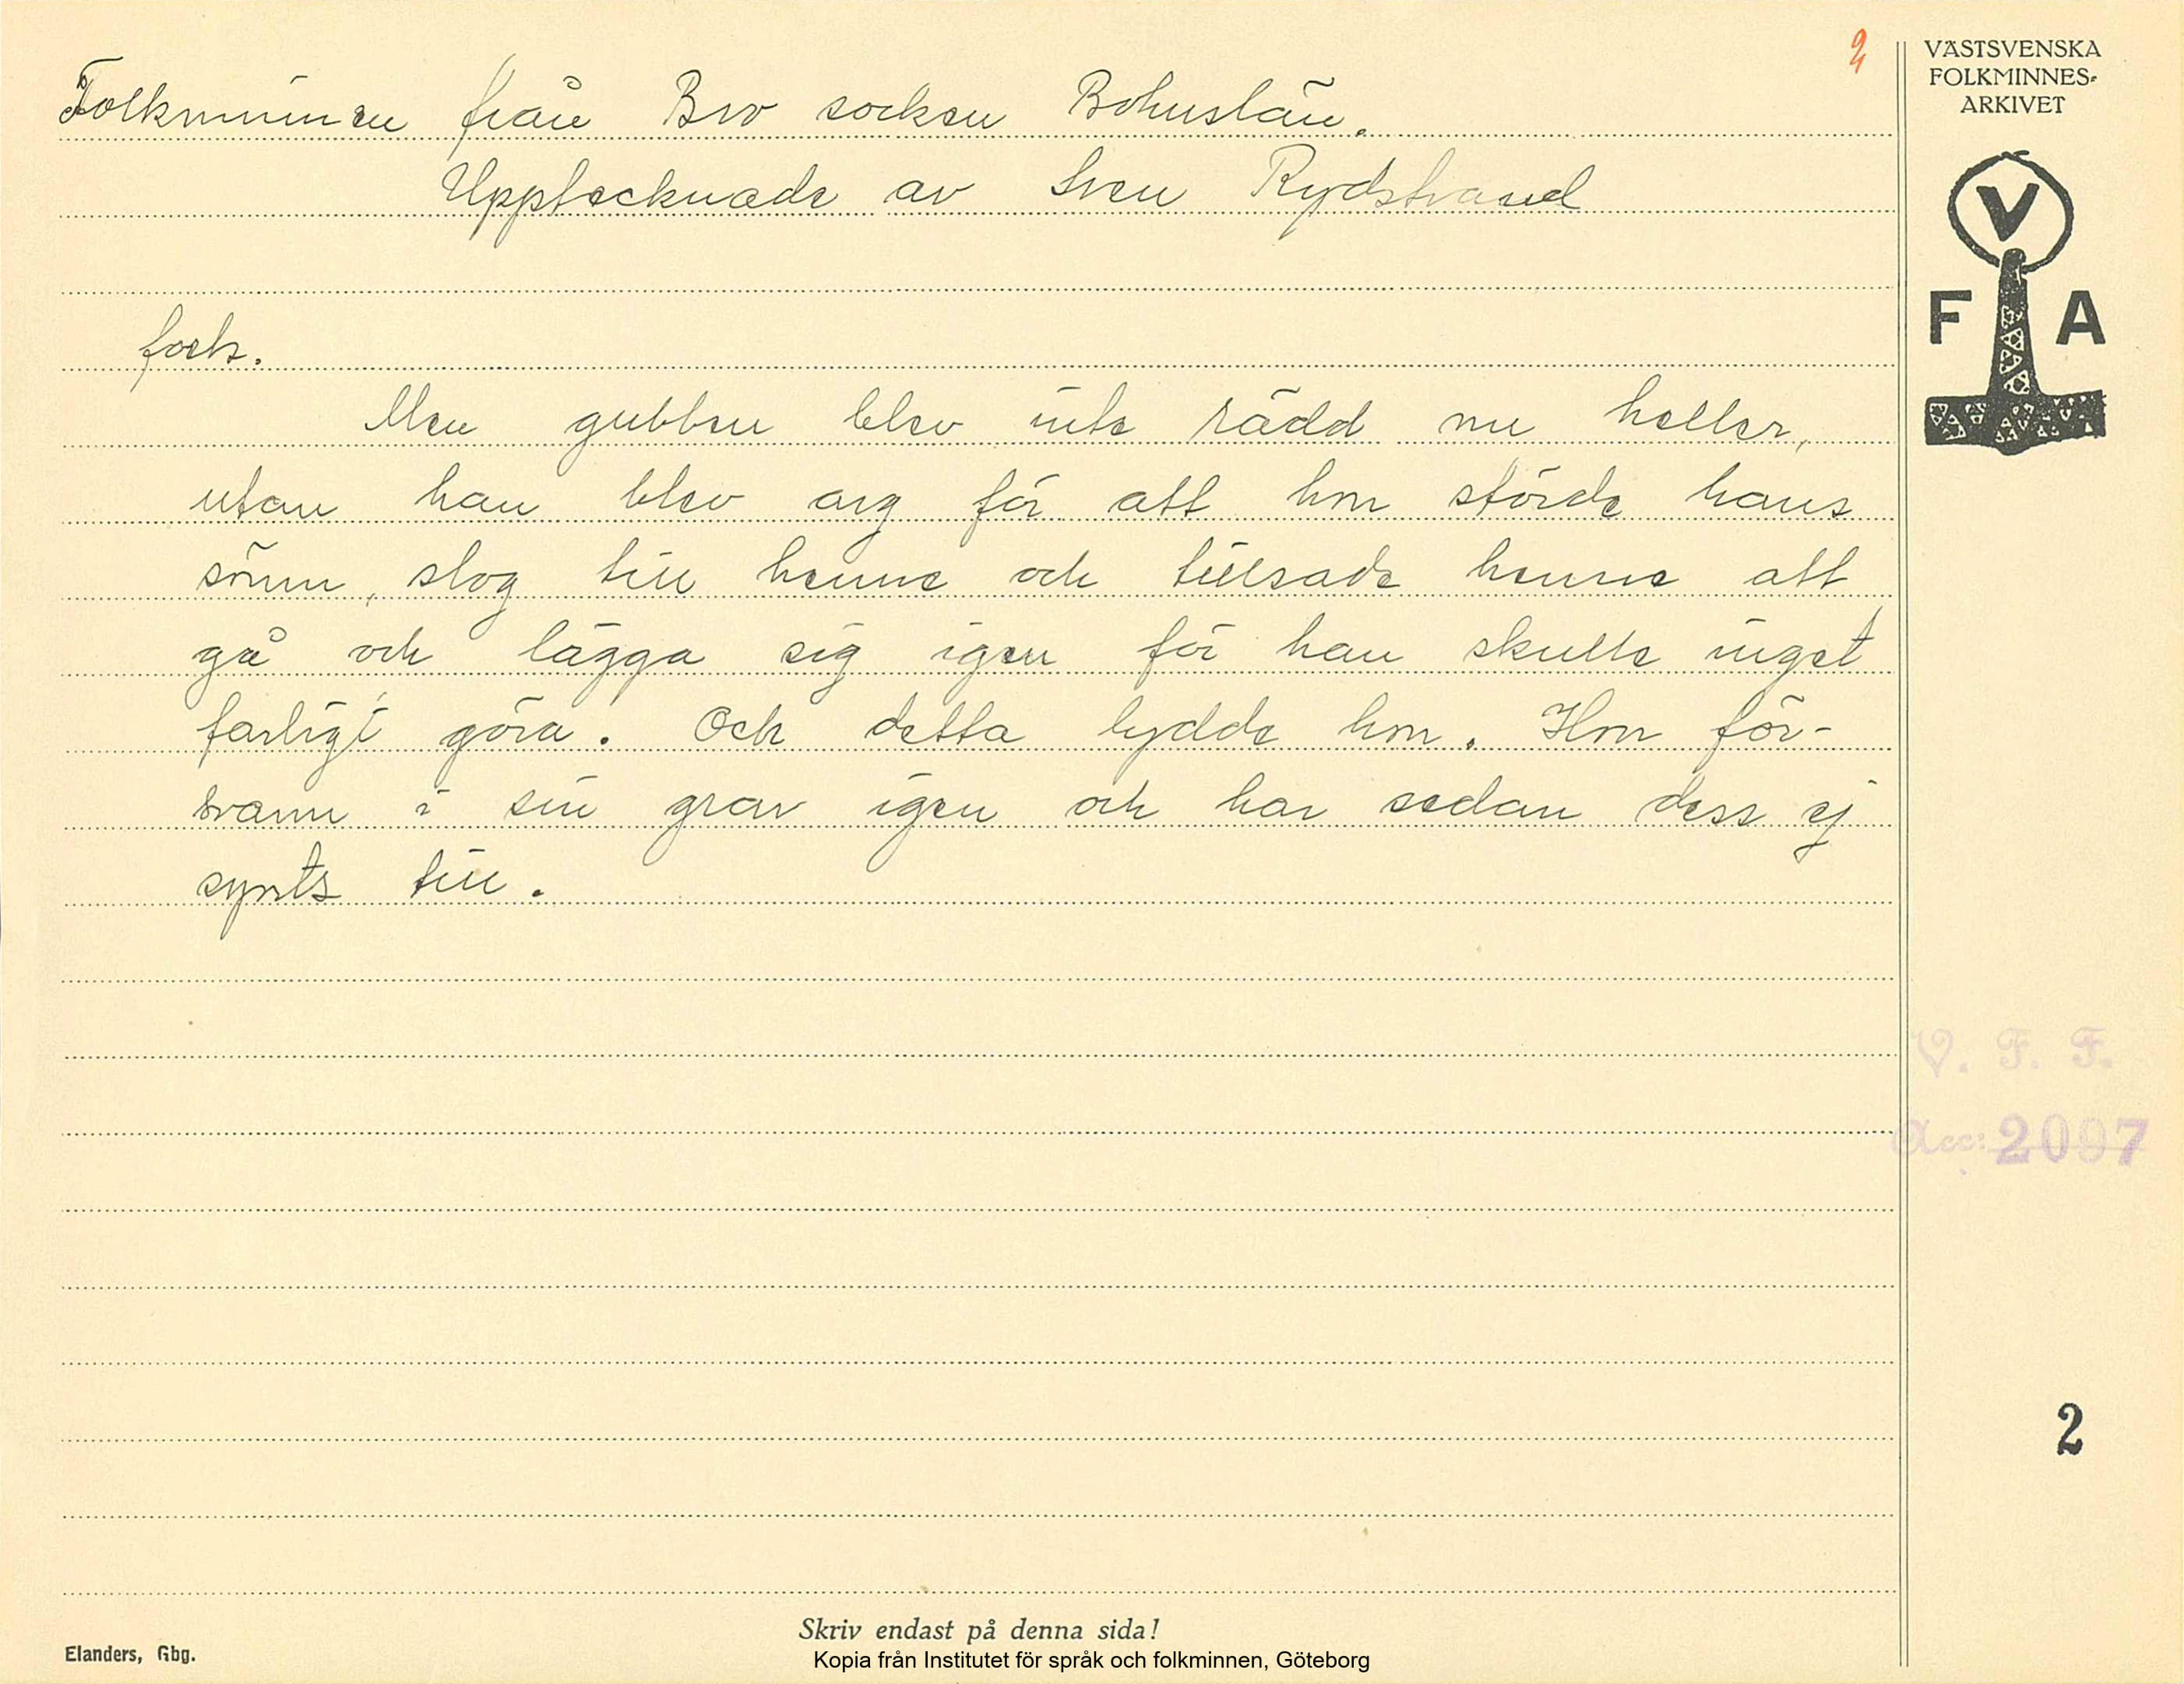 2
VÄSTSVENSKA
FOLKMINNES-
ARKIVET
V
F A
Folkminnen från Bro socken Bohuslän.
Upptecknade av Sven Rydstrand
forts.
Men gubben blev inte rädd nu heller,
utan han blev arg för att hon störde hans
sömn, slog till henne och tillsade henne att
gå och lägga sig igen för han skulle inget
farligt göra. Och detta lydde hon. Hon för-
svann i sin grav igen och har sedan dess ej
synts till.
V. F. F.
Acc: 2097
2
Skriv endast på denna sida!
Elanders, Gbg.
Kopia från Institutet för språk och folkminnen, Göteborg